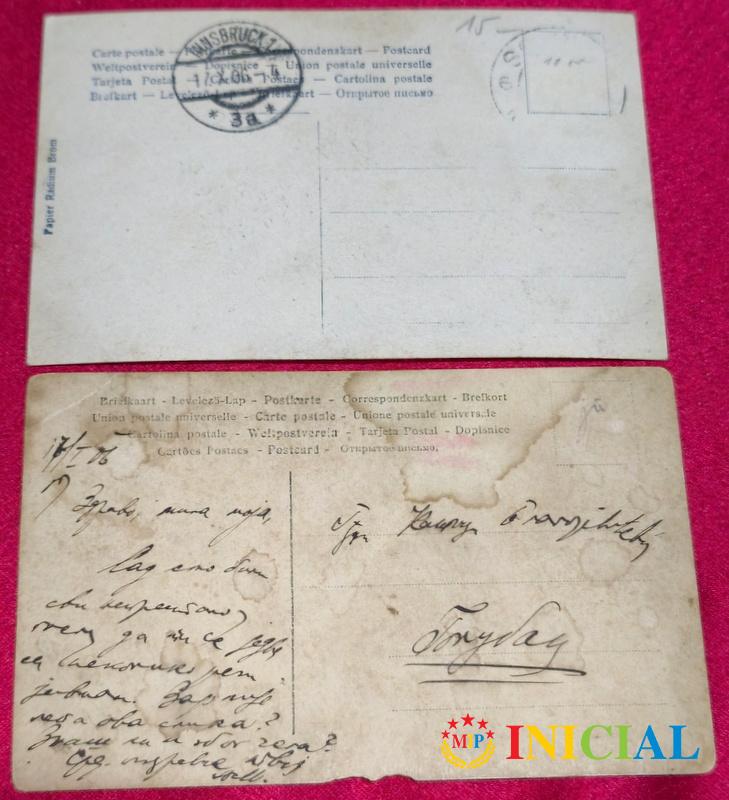 15
Carte postale — Postkarte — Correspondenskart — Postcard
Weltpostverein — Dopisnice — Union postale universelle
Tarjeta Postal — Cartões Postaes — Cartolina postale
Brefkort — Levelező-Lap — Briefkaart — Открытое письмо
INNSBRUCK 1
17.X.06-4
* 3a *
Papier Radium Brom
Briefkaart - Levelező-Lap - Postkarte - Correspondenzkart - Brefkort
Union postale universelle - Carte postale - Unione postale universale
Cartolina postale - Weltpostverein - Tarjeta Postal - Dopisnice
Cartões Postaes - Postcard - Открытое письмо.
17/I 06
Здраво, мила моја,
Сад смо били
сви
да ти се
са неколико речи
јавим. Зар није
лепа ова слика?
Знаш ли и због чега?
Срд. поздравља
Голубац
MIP INICIAL